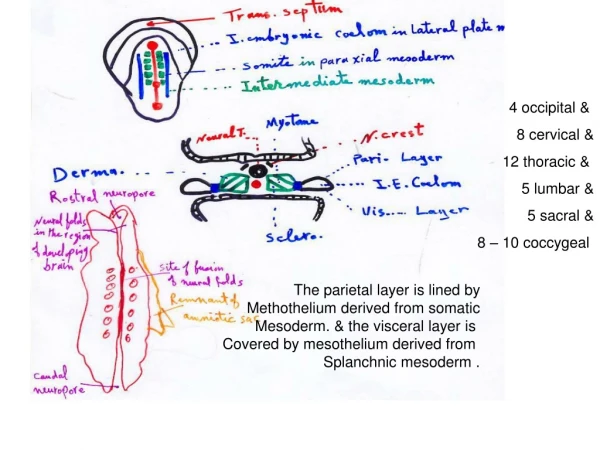 Trans. septum
I.embryonic coelom in Lateral plate m
somite in paraxial mesoderm
Intermediate mesoderm
4 occipital &
8 cervical &
12 thoracic &
5 lumbar &
5 sacral &
8 – 10 coccygeal
Myotome
Neural T.
N.crest
Pari- Layer
Derma.
I.E.Coelom
Vis... Layer
Sclero.
Rostral neuropore
Neural folds
in the region
of developing
brain
site of fusion
of neural folds
Remnant of
amniotic sac
Caudal
neuropore
The parietal layer is lined by
Methothelium derived from somatic
Mesoderm. & the visceral layer is
Covered by mesothelium derived from
Splanchnic mesoderm .